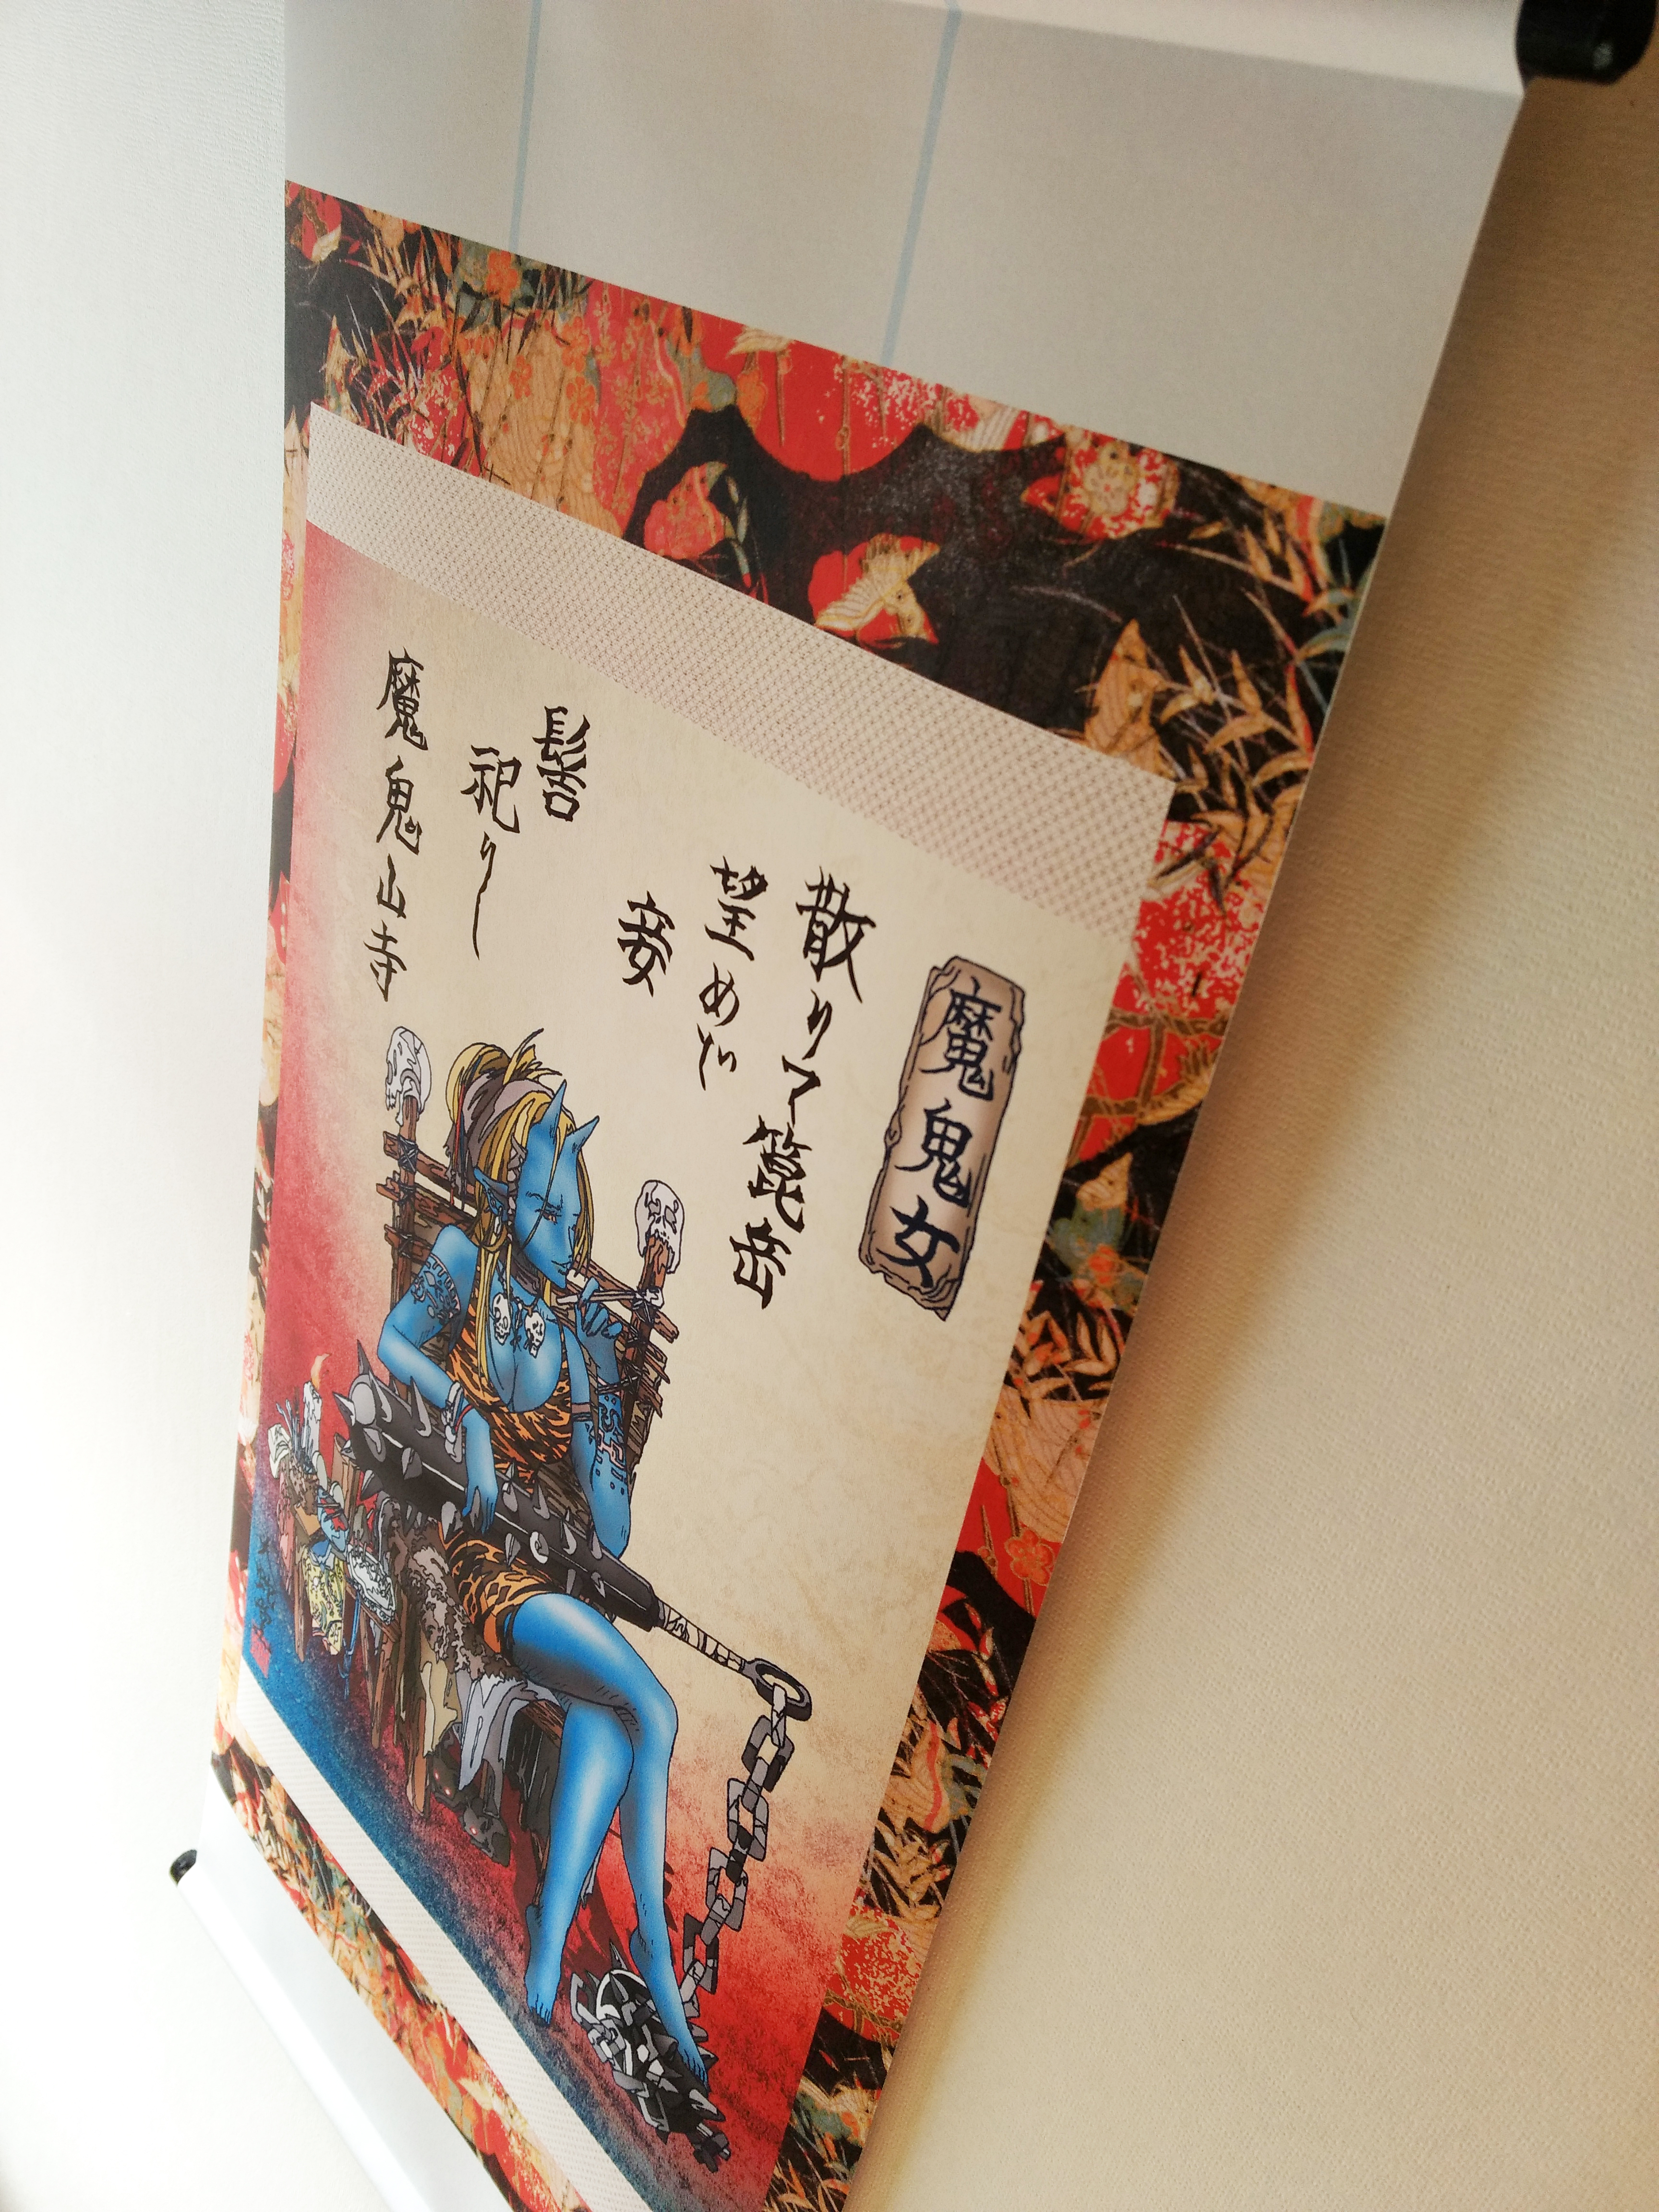 魔鬼女
散りて箟岳
望めど
妾
髻
祀りし
魔鬼山寺